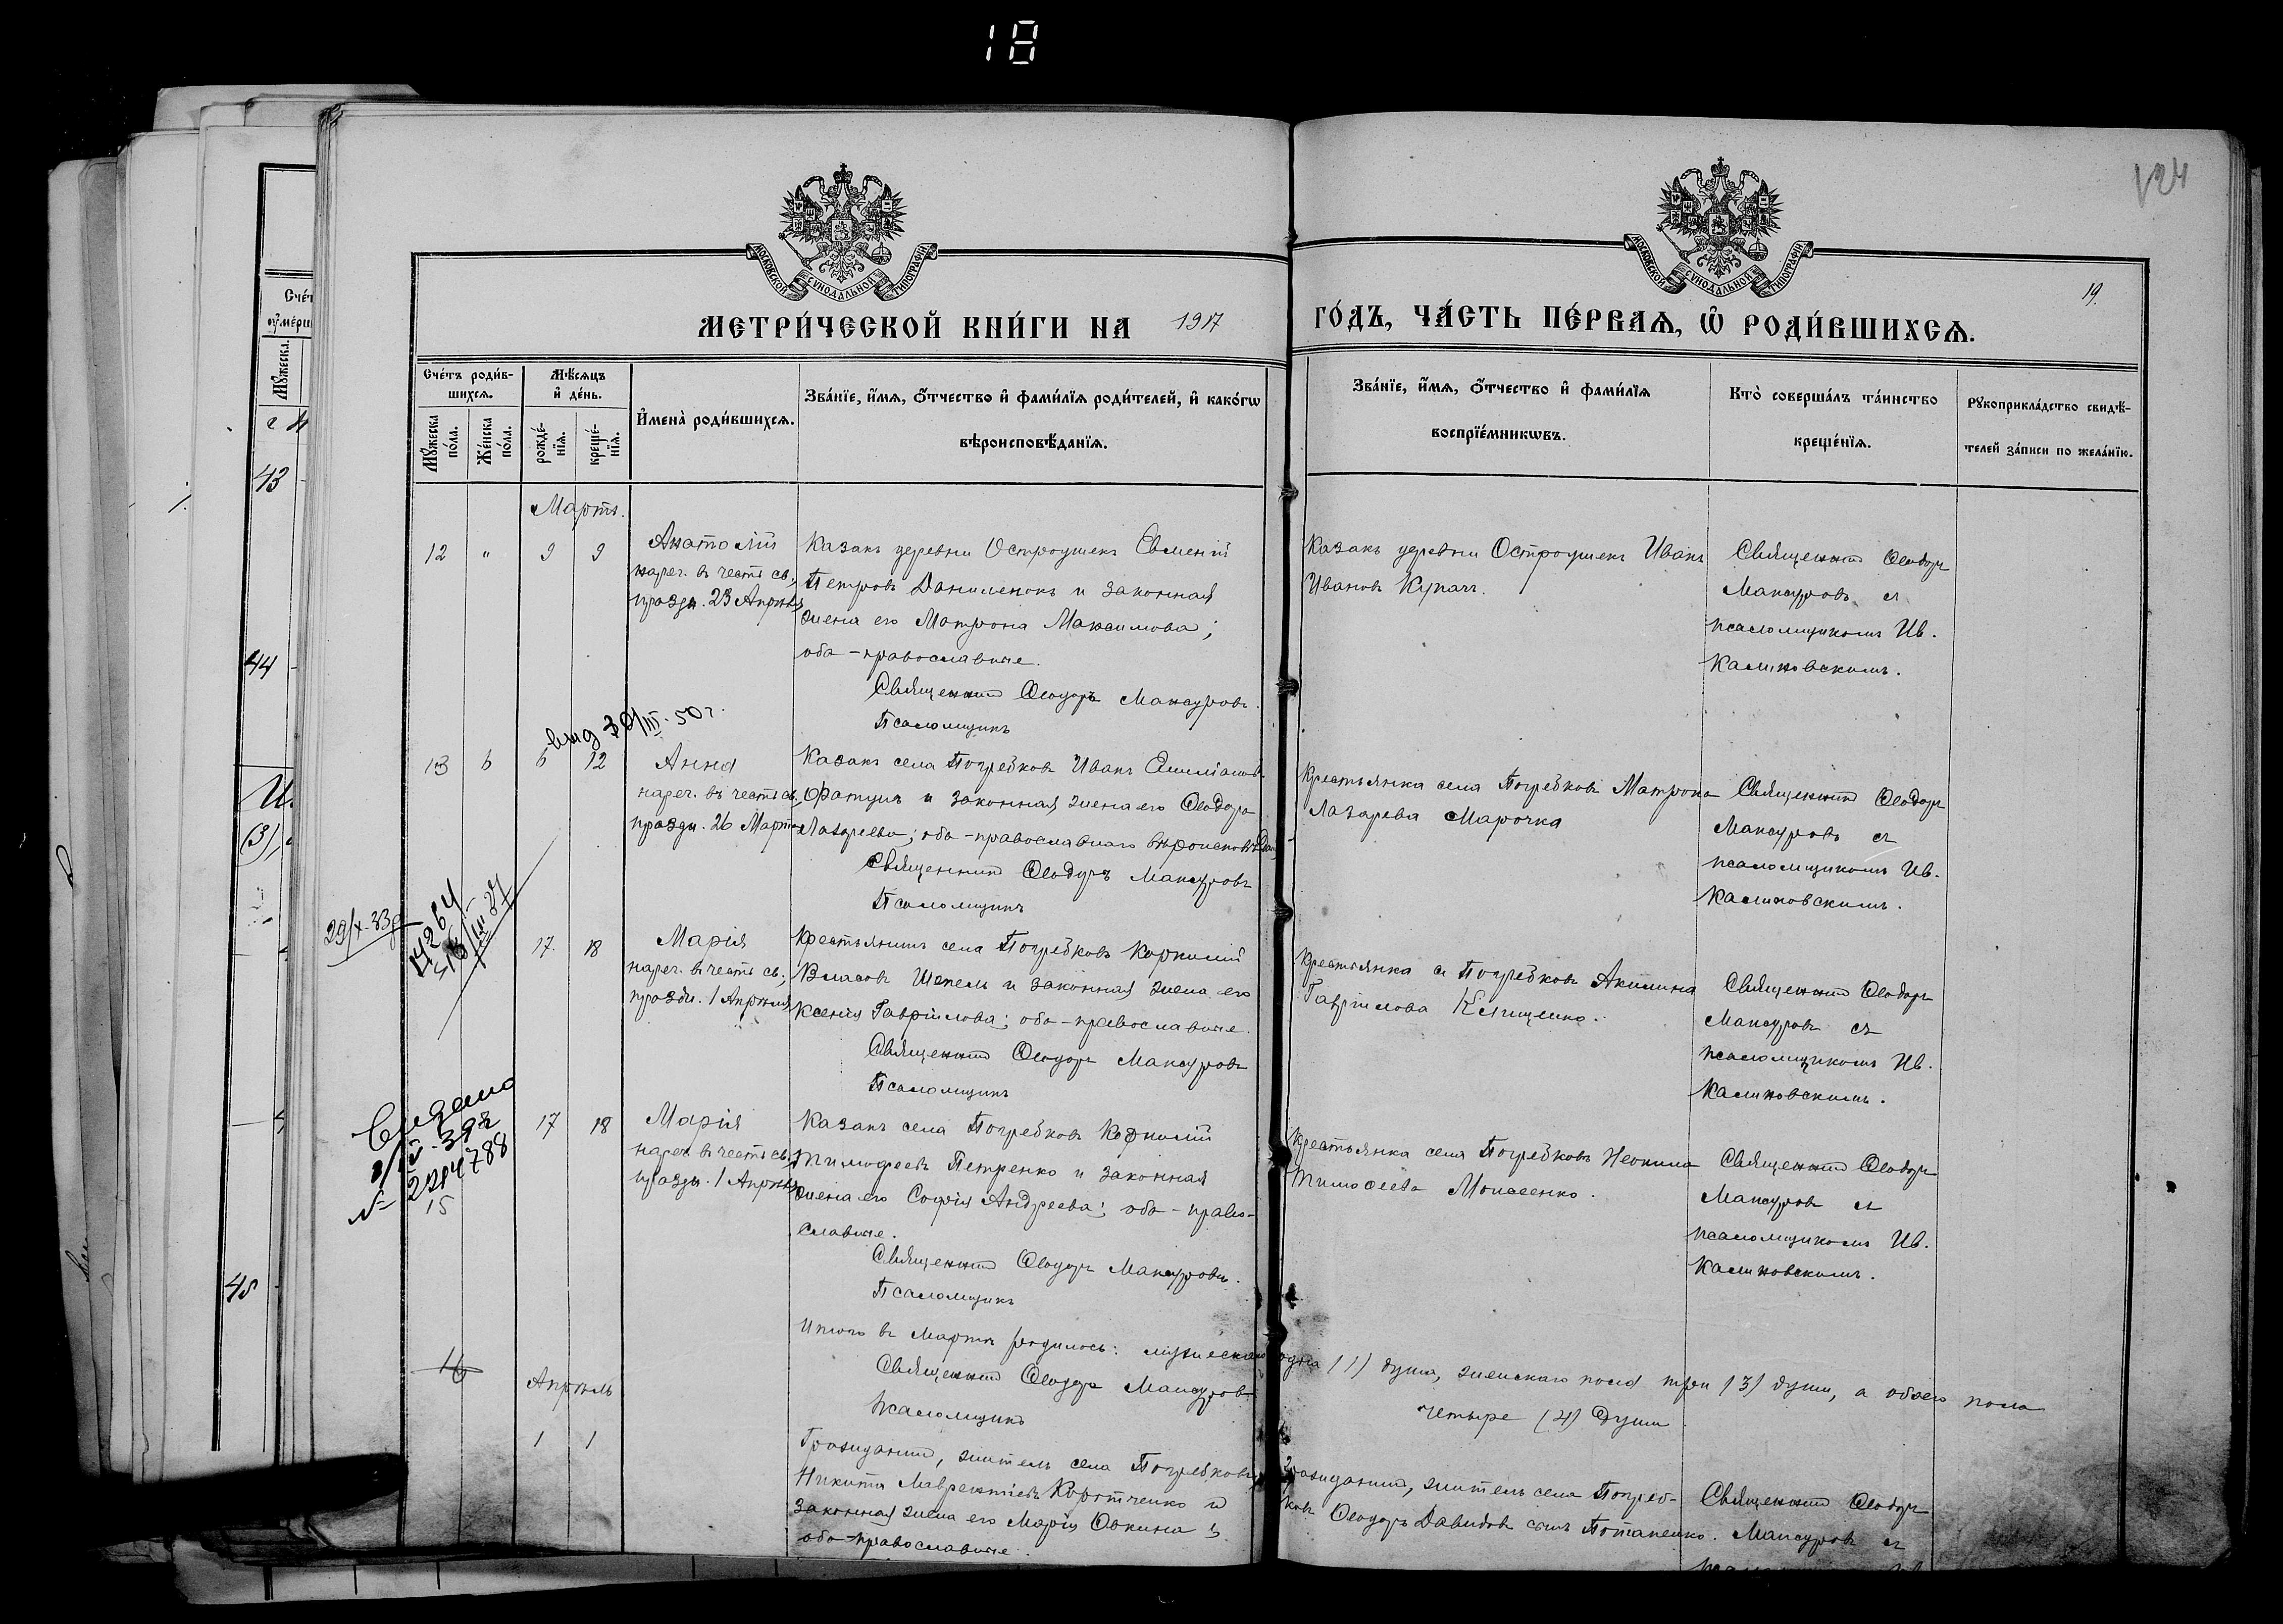 18
124
19.
МОСКОВСКОЙ СѴНОДАЛЬНОЙ ТИПОГРАФІИ
МОСКОВСКОЙ СѴНОДАЛЬНОЙ ТИПОГРАФІИ
МЕТРИ́ЧЕСКОЙ КНИ́ГИ НА 1917 ГО́ДЪ, ЧА́СТЬ ПЕ́РВАѦ, Ѡ РОДИ́ВШИХСѦ.
Сче́тъ роди́в-
шихсѧ.
Мѣ́сѧцъ
и҆ де́нь.
Мꙋ́жеска
по́ла.
Же́нска
по́ла.
рожде́-
нїѧ.
креще́-
нїѧ.
И҆мена̀ роди́вшихсѧ.
Зва́нїе, и҆́мѧ, ѻ҆́тчество и҆ фами́лїѧ роди́телей, и҆ како́гѡ
вѣроисповѣ́данїѧ.
Зва́нїе, и҆́мѧ, ѻ҆́тчество и҆ фами́лїѧ
воспрїе́мникѡвъ.
Кто̀ соверша́лъ та́инство
креще́нїѧ.
Рꙋкоприкла́дство свидѣ́-
телей за́писи по жела́нїю.
Мартъ.
12 " 9 9
Анатолій
нареч. въ честь св.,
праздн. 23 Апрѣля
Казакъ деревни Остроушекъ Евменій
Петровъ Данилекокъ и законная
жена его Матрона Максимова;
оба - православные.
Священникъ Ѳеодоръ Мансуровъ.
Псаломщикъ
Казакъ деревни Остроушекъ Иванъ
Ивановъ Купачъ.
Священникъ Ѳеодоръ
Мансуровъ съ
псаломщикомъ Ив.
Калиновскимъ.
выд 30/III. 50 г.
13 6 6 12
Анна
нареч. въ честь св.,
праздн. 26 Марта
Казакъ села Погребковъ Иванъ
и законная жена его Ѳеодора
Лазарева; оба - православнаго
Священникъ Ѳеодоръ Мансуровъ
Псаломщикъ
Крестьянка села Погребковъ Матрона
Лазарева Марочка
Священникъ Ѳеодоръ
Мансуровъ съ
псаломщикомъ Ив.
Калиновскимъ.
29/X-33г
17. 18
Марія
нареч. въ честь св.,
праздн. 1 Апрѣля
Крестьянинъ села Погребковъ Корнилій
Власовъ Шепель и законная жена его
Ксенія Гавріилова; оба - православные.
Священникъ Ѳеодоръ Мансуровъ
Псаломщикъ
Крестьянка с. Погребковъ Акилина
Гавріилова Клищенко.
Священникъ Ѳеодоръ
Мансуровъ съ
псаломщикомъ Ив.
Калиновскимъ.
№ 2214788
15
17 18
Марія
нареч. въ честь св.,
праздн. 1 Апрѣля
Казакъ села Погребковъ Корнилій
Тимофеевъ Петренко и законная
жена его Софія Андреева; оба - право-
славные.
Священникъ Ѳеодоръ Мансуровъ.
Псаломщикъ
Крестьянка села Погребковъ Неонила
Тимоѳеева Моисеенко.
Священникъ Ѳеодоръ
Мансуровъ съ
псаломщикомъ Ив.
Калиновскимъ.
Итого въ Мартѣ родилось: мужескаго одна (1) душа, женскаго пола три (3) души, а обоего пола
четыре (4) души
Священникъ Ѳеодоръ Мансуровъ
Псаломщикъ
16
Апрѣль
1 1
Гражданинъ, житель села Погребковъ
Никита Лаврентіевъ Коротченко и
законная жена его Марія
оба - православные.
Гражданинъ, житель села Погреб-
ковъ Ѳеодоръ Давидовъ сынъ Потапенко.
Священникъ Ѳеодоръ
Мансуровъ съ
43
44
45